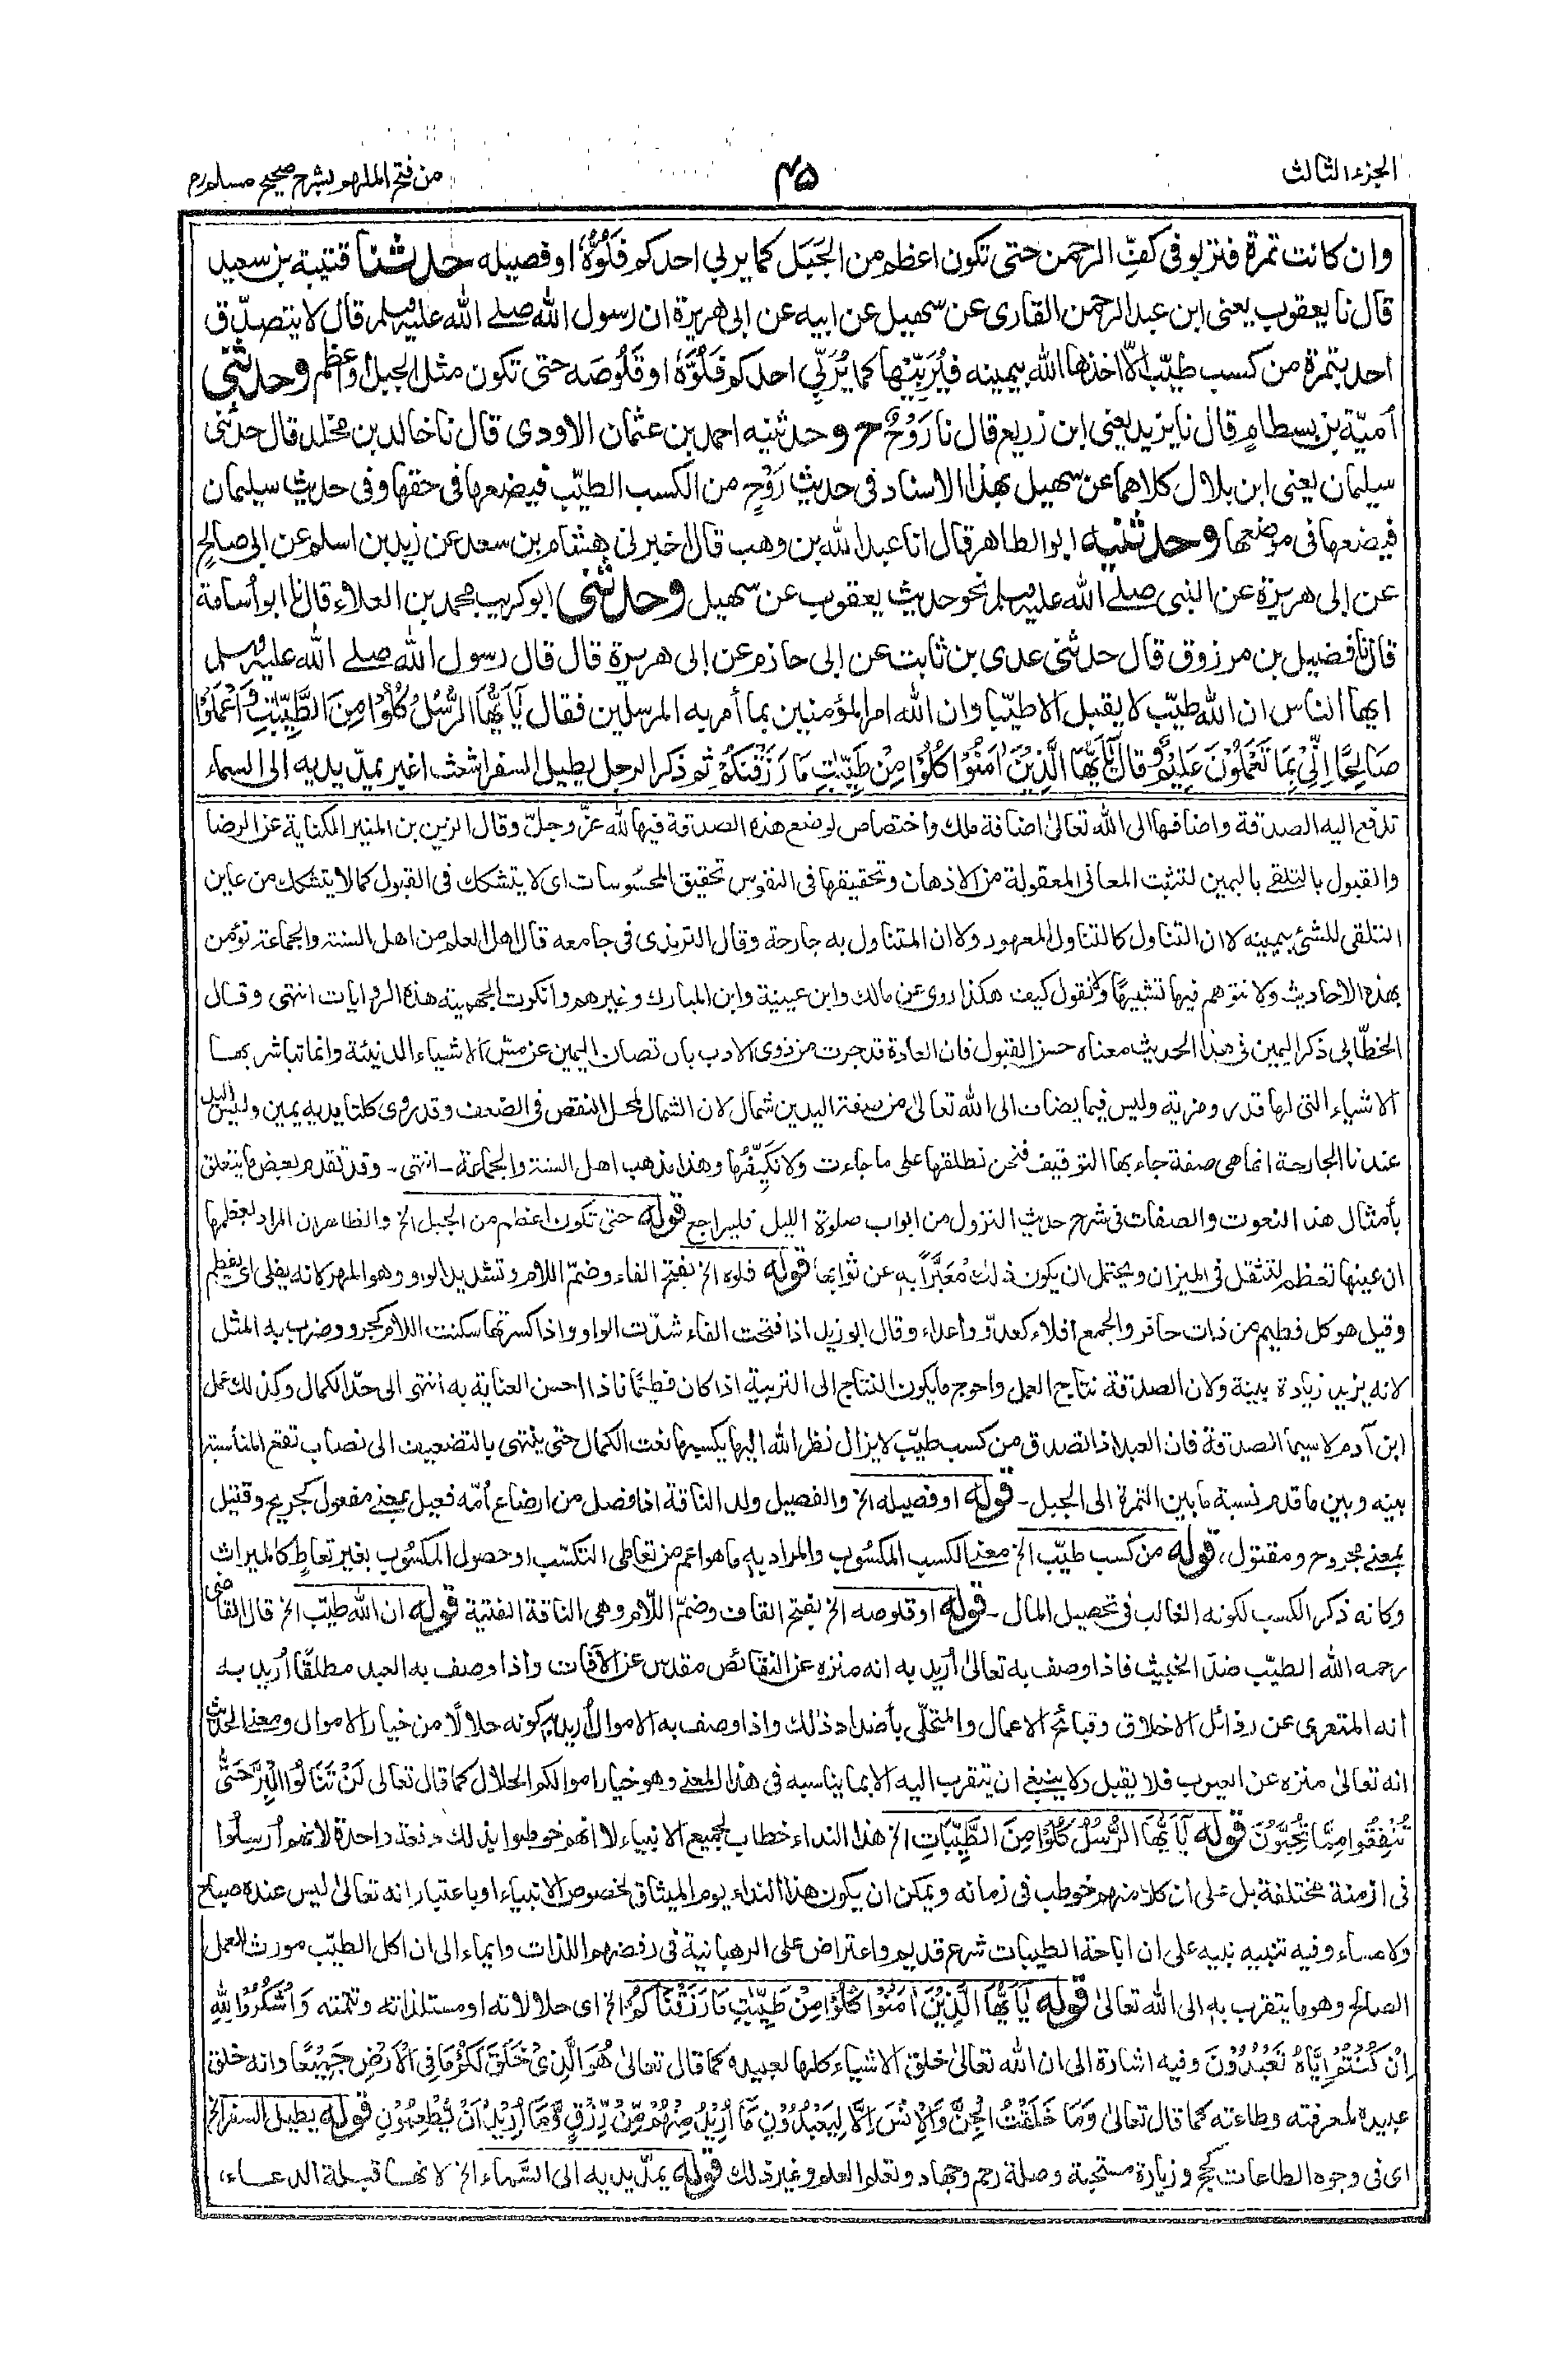 الجزء الثالث
۴۵
من فتح الملهم بشرح صحيح مسلم رح
وان كانت تمرة فتربو في كفِّ الرحمن حتى تكون اعظم من الجَبَل كما يربي احدكم فَلُوَّهُ او فصيله حدثنا قتيبة بن سعيد
قال نا يعقوب يعنى ابن عبد الرحمن القارى عن سهيل عن ابيه عن ابى هريرة ان رسول الله صلے الله عليه وسلم قال لا يتصدّق
احد بتمرة من كسب طيّب الّا اخذها الله بيمينه فيُرَبِّيْها كما يُرَبِّي احدكم فَلُوَّهُ او قَلُوصَه حتى تكون مثل الجبل او اعظم وحدثنى
اُميّة بن بسطامٍ قال نا يزيد يعنى ابن زريع قال نا رَوْحٌ ح وحدثنيه احمد بن عثمان الاودى قال نا خالد بن مخلد قال حدثنى
سليمان يعنى ابن بلال كلاهما عن سهيل بهذا الاسناد فى حديث رَوْحٍ من الكسب الطيّب فيضعها فى حقها وفى حديث سليمان
فيضعها فى موضعها وحدثنيه ابو الطاهر قال انا عبد الله بن وهب قال اخبرنى هشام بن سعد عن زيد بن اسلم عن ابى صالح
عن ابى هريرة عن النبى صلے الله عليه وسلم نحو حديث يعقوب عن سهيل وحدثنى ابو كريب محمد بن العلاء قال نا ابو اُسامة
قال نا فضيل بن مرزوق قال حدثنى عدى بن ثابت عن ابى حازم عن ابى هريرة قال قال رسول الله صلے الله عليه وسلم
ايها الناس ان الله طيّب لا يقبل الا طيّبا وان الله امر المؤمنين بما أمر به المرسلين فقال يٰٓاَيُّهَا الرُّسُلُ كُلُوْا مِنَ الطَّيِّبٰتِ وَاعْمَلُوْا
صَالِحًا اِنِّىْ بِمَا تَعْمَلُوْنَ عَلِيْمٌ وقال يٰٓاَيُّهَا الَّذِيْنَ اٰمَنُوْا كُلُوْا مِنْ طَيِّبٰتِ مَا رَزَقْنٰكُمْ ثم ذكر الرجل يطيل السفر اشعث اغبر يمدّ يديه الى السماء
تدفع اليه الصدقة واضافها الى الله تعالى اضافة ملك واختصاص لوضع هذه الصدقة فيها لله عزّ وجلّ وقال الزين بن المنير الكناية عن الرضا
والقبول بالتلقے باليمين لتثبت المعانى المعقولة من الاذهان وتحقيقها فى النفوس تحقيق المحسُوسات اى لا يتشكك فى القبول كما لا يتشكك من عاين
التلقى للشئ بيمينه لا ان التناول كالتناول المعهود ولا ان المتناول به جارحة وقال الترمذى فى جامعه قال اهل العلم من اهل السنة والجماعة نؤمن
بهذه الاحاديث ولا نتوهم فيها تشبيهًا ولا نقول كيف هكذا روى عن مالك وابن عيينة وابن المبارك وغيرهم وانكرت الجهمية هذه الروايات انتهى وقال
الخطّابى ذكر اليمين فى هذا الحديث معناه حسن القبول فان العادة قد جرت من ذوى الادب بان تصان اليمين عن مسّ الاشياء الدنيئة وانما تباشر بها
الاشياء التى لها قدر ومزية وليس فيما يضاف الى الله تعالى من صفة اليدين شمال لان الشمال لمحل النقص فى الضعف وقد روى كلتا يديه يمين وليس اليد
عندنا الجارحة انما هى صفة جاء بها التوقيف فنحن نطلقها على ما جاءت ولا نُكَيِّفُها وهذا مذهب اهل السنة والجماعة ـ انتهى ـ وقد تقدم بعض ما يتعلق
بأمثال هذا النعوت والصفات فى شرح حديث النزول من ابواب صلوة الليل فليراجع قوله حتى تكون اعظم من الجبل الخ والظاهر ان المراد بعظمها
ان عينها تعظم لتثقل فى الميزان ويحتمل ان يكون ذلك مُعَبَّرًا به عن ثوابها قوله فلوه الخ بفتح الفاء وضمّ اللام وتشديد الواو وهو المهر لانه يفلى اى يفطم
وقيل هو كل فطيم من ذات حافر والجمع افلاء كعدوّ وأعداء وقال ابو زيد اذا فتحت الفاء شدّت الواو واذا كسرتها سكنت اللام كجرو وضرب به المثل
لانه يزيد زيادة بينة ولان الصدقة نتاج العمل واحوج ما يكون النتاج الى التربية اذا كان فطيمًا فاذا احسن العناية به انتهى الى حدّ الكمال وكذلك عمل
ابن آدم لا سيما الصدقة فان العبد اذا تصدق من كسب طيّب لا يزال نظر الله اليها يكسبها نعت الكمال حتى ينتهى بالتضعيف الى نصاب تقع المناسبة
بينه وبين ما قدم نسبة ما بين التمرة الى الجبل ـ قوله او فصيله الخ والفصيل ولد الناقة اذا فصل من ارضاع اُمّه فعيل بمعنے مفعول كجريح وقتيل
بمعنے مجروح ومقتول، قوله من كسب طيّب الخ معنے الكسب المكسُوب والمراد به ما هو اعم من تعاطى التكسّب او حصول المكسُوب بغير تعاطٍ كالميراث
وكانه ذكر الكسب لكونه الغالب فى تحصيل المال ـ قوله او قلوصه الخ بفتح القاف وضمّ اللّام وهى الناقة الفتية قوله ان الله طيّب الخ قال القاضى
رحمه الله الطيّب ضدّ الخبيث فاذا وصف به تعالى اُريد به انه منزه عن النقائص مقدس عن الآفات واذا وصف به العبد مطلقًا اُريد به
انه المتعرى عن رذائل الاخلاق وقبائح الاعمال والمتحلّى بأضداد ذلك واذا وصف به الاموال اُريد به كونه حلالًا من خيار الاموال ومعنے الحديث
انه تعالى منزه عن العيوب فلا يقبل ولا ينبغى ان يتقرب اليه الا بما يناسبه فى هذا المعنے وهو خيار اموالكم الحلال كما قال تعالى لَنْ تَنَالُوا الْبِرَّ حَتّٰى
تُنْفِقُوا مِمَّا تُحِبُّوْنَ قوله يٰٓاَيُّهَا الرُّسُلُ كُلُوْا مِنَ الطَّيِّبَاتِ الخ هذا النداء خطاب لجميع الانبياء لا انهم خوطبوا بذلك دفعة واحدة لانهم اُرسِلُوا
فى ازمنة مختلفة بل على ان كلا منهم خوطب فى زمانه ويمكن ان يكون هذا النداء يوم الميثاق لخصوص الانبياء او باعتبار انه تعالى ليس عنده صباح
ولا مساء وفيه تنبيه نبيه على ان اباحة الطيبات شرع قديم واعتراض على الرهبانية فى رفضهم اللذات وايماء الى ان اكل الطيّب مورث العمل
الصالح وهو ما يتقرب به الى الله تعالى قوله يٰٓاَيُّهَا الَّذِيْنَ اٰمَنُوْا كُلُوْا مِنْ طَيِّبٰتِ مَا رَزَقْنَاكُمْ الخ اى حلالاته او مستلذاته وتتمته وَاشْكُرُوْا لِلّٰهِ
اِنْ كُنْتُمْ اِيَّاهُ تَعْبُدُوْنَ وفيه اشارة الى ان الله تعالى خلق الاشياء كلها لعبيده كما قال تعالى هُوَ الَّذِىْ خَلَقَ لَكُمْ مَا فِى الْاَرْضِ جَمِيْعًا وانه خلق
عبيده لمعرفته وطاعته كما قال تعالى وَمَا خَلَقْتُ الْجِنَّ وَالْاِنْسَ اِلَّا لِيَعْبُدُوْنِ مَآ اُرِيْدُ مِنْهُمْ مِّنْ رِّزْقٍ وَّمَآ اُرِيْدُ اَنْ يُّطْعِمُوْنِ قوله يطيل السفر الخ
اى فى وجوه الطاعات كحج وزيارة مستحبة وصلة رحم وجهاد وتعلم العلم وغير ذلك قوله يمدّ يديه الى السَّماء الخ لانها قبلة الدعاء،